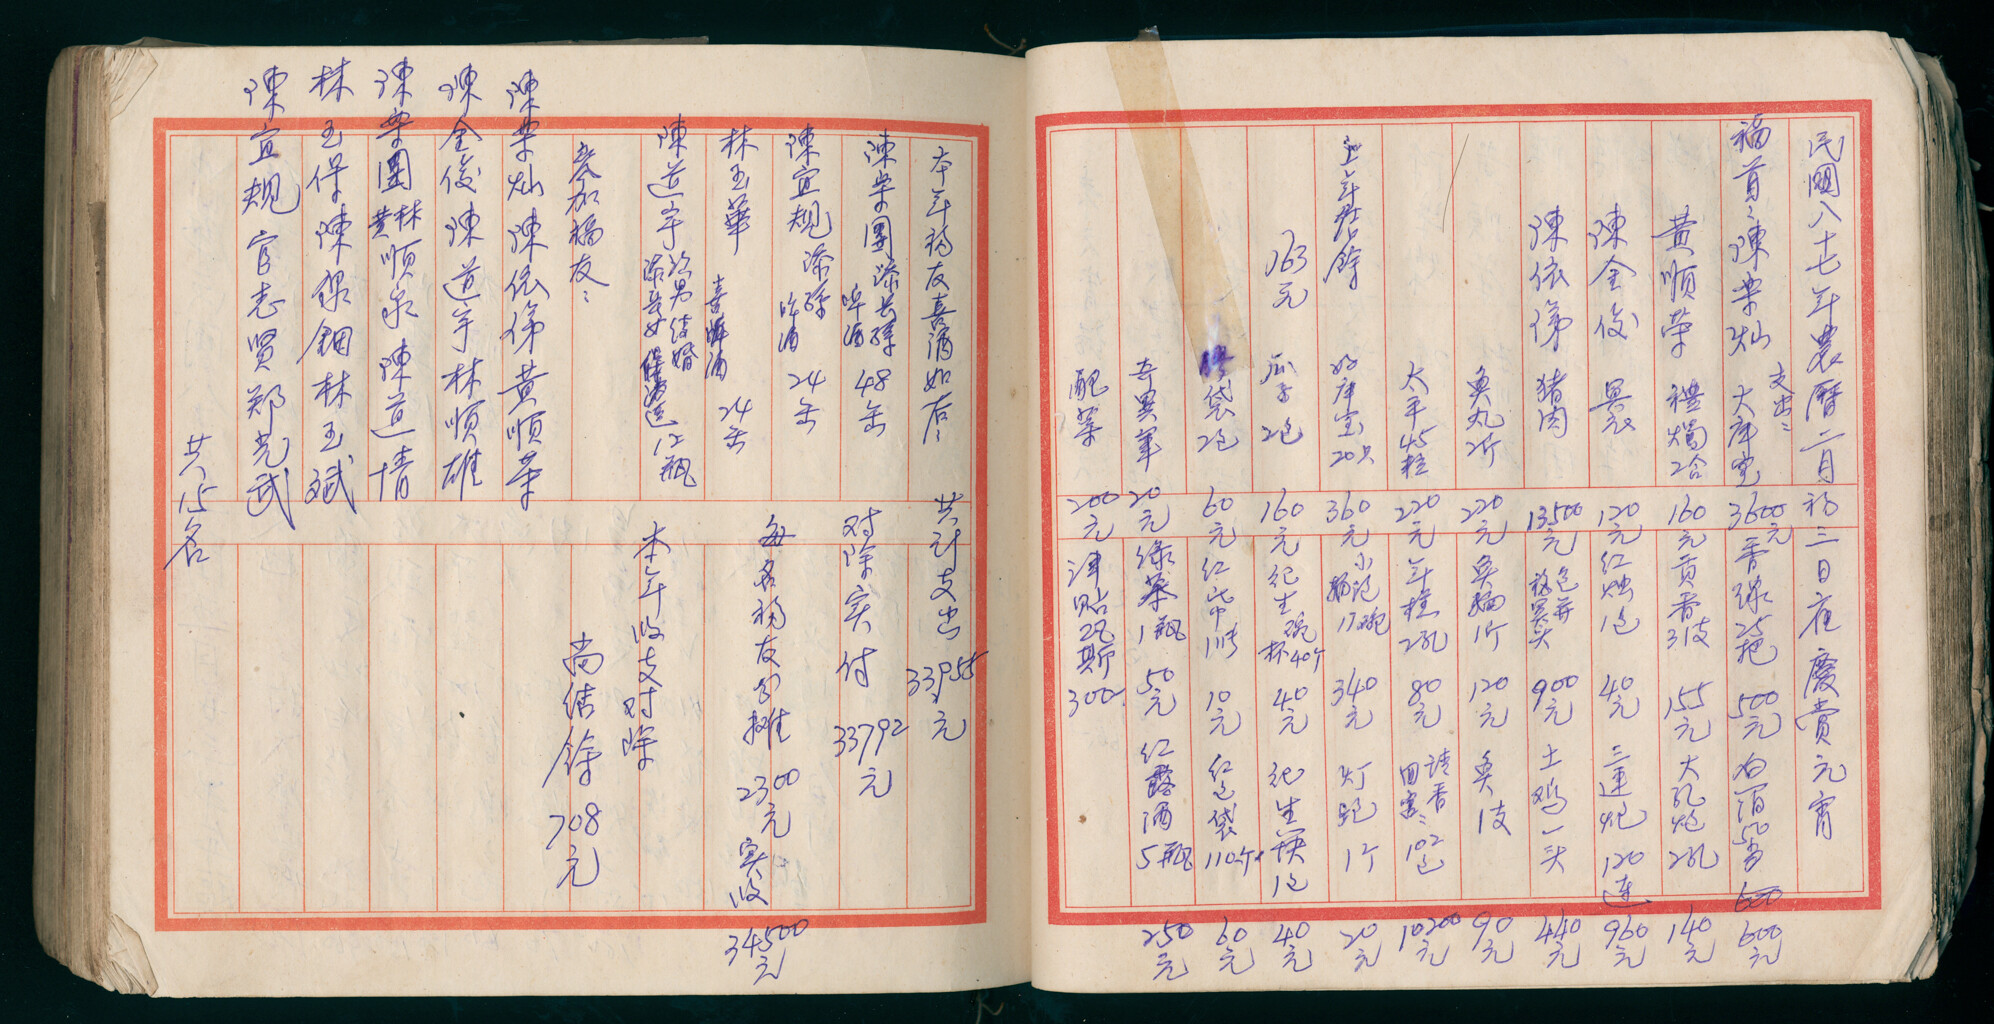 民國八十七年農曆二月初三日夜慶賞元宵
福首：陳榮灿 支出： 大庫寶 3600元 香線25把 500元 白酒50番 600元
黃順榮 禮燭2合 160元 貢香31支 155元 大孔炮2孔 140元
陳金俊 晃衣 120元 红烛1包 40元 三連炮120連 960元
陳依俤 猪肉 13500元 900元 土鸡一头 440元
魚丸2斤 220元 魚 1斤 120元 魚1支 90元
太平45粒 220元 年桂2孔 80元 請香回客：102包 10200元
上年結餘 好库宝20只 360元 小泡麵17碗 340元 灯炮1个 20元
163元 瓜子2包 160元 紀生碗杯40个 40元 纪生筷1包 40元
袋2包 60元 红 10元 红包袋110个 60元
奇異筆 20元 绿茶1瓶 50元 红露酒5瓶 250元
配菜 200元 津貼瓦斯 300
本年福友喜酒如右： 共計支出 33955元
陳榮團添長孫啤酒 48缶 对除实付 33792元
陳宜规添孫啤酒 24缶
林玉華 喜啤酒 24缶 每名福友 2300元 实收 34500元
陳道宇 次男结婚 12瓶 本年收支对除
參加福友： 尚结餘 708元
陳榮灿 陳依俤 黃順荣
陳金俊 陳道宇 林順雄
陳榮團 林黃順永 陳道情
林玉保 陳錦鈿 林玉斌
陳宜规 官志贤 郑光武
共15名